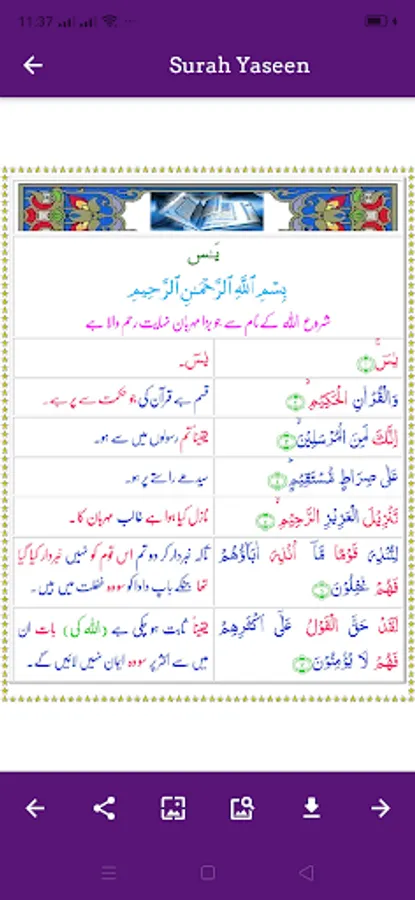 11:37
Surah Yaseen
يٰسٓ
بِسْمِ ٱللَّهِ ٱلرَّحْمَـٰنِ ٱلرَّحِيمِ
شروع اللہ کے نام سے جو بڑا مہربان نہایت رحم والا ہے
يٰسٓ ۚ ﴿۱﴾
یٰسٓ۔
وَالْقُرْاٰنِ الْحَكِيْمِ ۙ ﴿۲﴾
قسم ہے قرآن کی جو حکمت سے پر ہے۔
اِنَّكَ لَمِنَ الْمُرْسَلِيْنَ ۙ ﴿۳﴾
یقیناً تم رسولوں میں سے ہو۔
عَلٰى صِرَاطٍ مُّسْتَقِيْمٍ ؕ ﴿۴﴾
سیدھے راستے پر ہو۔
تَنْزِيْلَ الْعَزِيْزِ الرَّحِيْمِ ۙ ﴿۵﴾
نازل کیا ہوا ہے غالب مہربان کا۔
لِتُنْذِرَ قَوْمًا مَّاۤ اُنْذِرَ اٰبَآؤُهُمْ
فَهُمْ غٰفِلُوْنَ ﴿۶﴾
تاکہ خبردار کر دو تم اس قوم کو نہیں خبردار کیا گیا
تھا جنکے باپ دادا کو سو وہ غفلت میں ہیں۔
لَقَدْ حَقَّ الْقَوْلُ عَلٰٓى اَكْثَرِهِمْ
فَهُمْ لَا يُؤْمِنُوْنَ ﴿۷﴾
یقیناً ثابت ہو چکی ہے (اللہ کی) بات ان
میں سے اکثر پر سو وہ ایمان نہیں لائیں گے۔